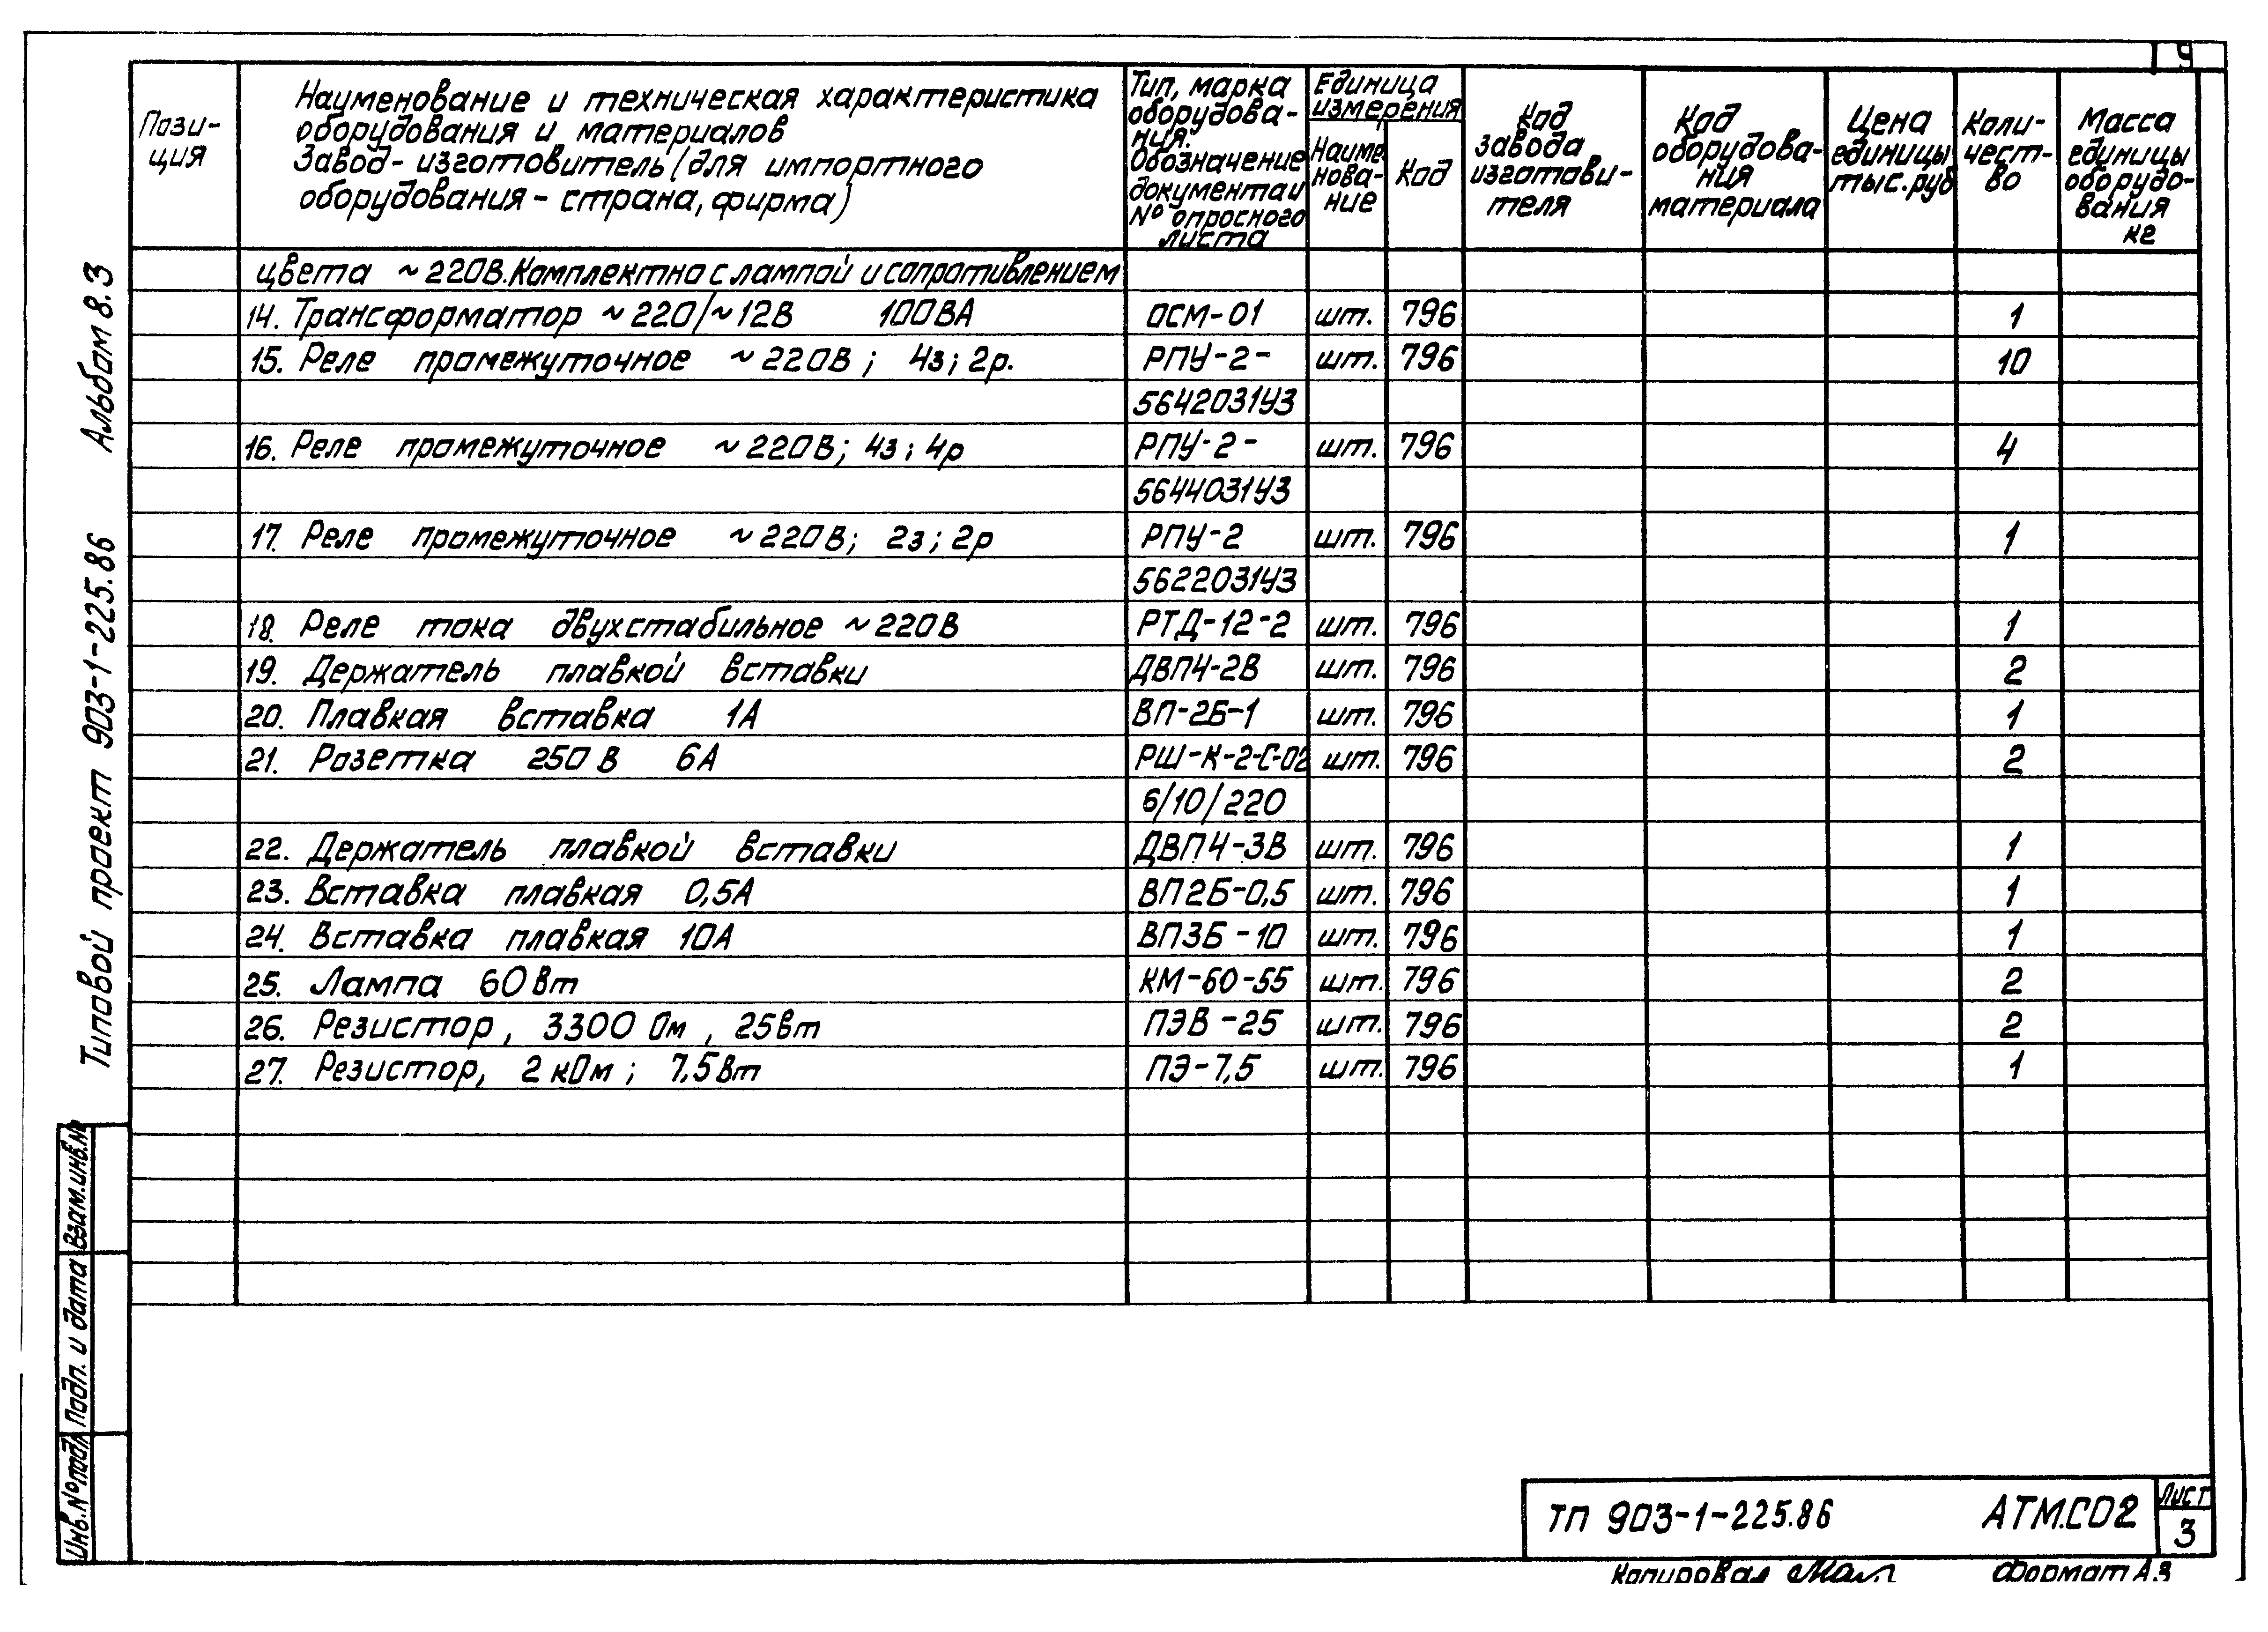 9
Пози-
ция
Наименование и техническая характеристика
оборудования и материалов
Завод-изготовитель (для импортного
оборудования - страна, фирма)
Тип, марка
оборудова-
ния.
Обозначение
документа и
№ опросного
листа
Единица
измерения
Наиме
нова-
ние
Код
Код
завода
изготови-
теля
Код
оборудова-
ния
материала
Цена
единицы
тыс. руб
Коли-
чест-
во
Масса
единицы
оборудо-
вания
кг
цвета ~220В. Комплектно с лампой и сопротивлением
14. Трансформатор ~220/~12В 100ВА ОСМ-01 шт. 796 1
15. Реле промежуточное ~220В; 4з; 2р. РПУ-2- шт. 796 10
5642031У3
16. Реле промежуточное ~220В; 4з; 4р РПУ-2- шт. 796 4
5644031У3
17. Реле промежуточное ~220В; 2з; 2р РПУ-2 шт. 796 1
5622031У3
18. Реле тока двухстабильное ~220В РТД-12-2 шт. 796 1
19. Держатель плавкой вставки ДВП4-2В шт. 796 2
20. Плавкая вставка 1А ВП-2Б-1 шт. 796 1
21. Розетка 250В 6А РШ-К-2-С-02 шт. 796 2
6/10/220
22. Держатель плавкой вставки ДВП4-3В шт. 796 1
23. Вставка плавкая 0,5А ВП2Б-0,5 шт. 796 1
24. Вставка плавкая 10А ВП3Б-10 шт. 796 1
25. Лампа 60Вт КМ-60-55 шт. 796 2
26. Резистор, 3300 Ом, 25Вт ПЭВ-25 шт. 796 2
27. Резистор, 2 кОм; 7,5Вт ПЭ-7,5 шт. 796 1
Типовой проект 903-1-225.86 Альбом 8.3
Взам.инв.№
Подп. и дата
Инв.№подл
ТП 903-1-225.86 АТМ.СО2
Лист
3
Копировал
Формат А3